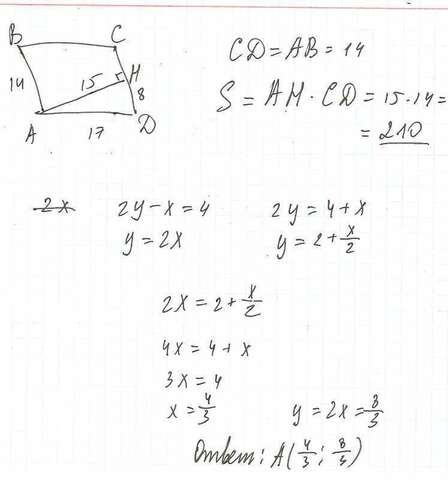 B C
14 15 H
8
A 17 D
CD = AB = 14
S = AH · CD = 15 · 14 =
= 210
2x
2y - x = 4 2y = 4 + x
y = 2x y = 2 + x/2
2x = 2 + x/2
4x = 4 + x
3x = 4
x = 4/3 y = 2x = 8/3
Ответ: A(4/3; 8/3)